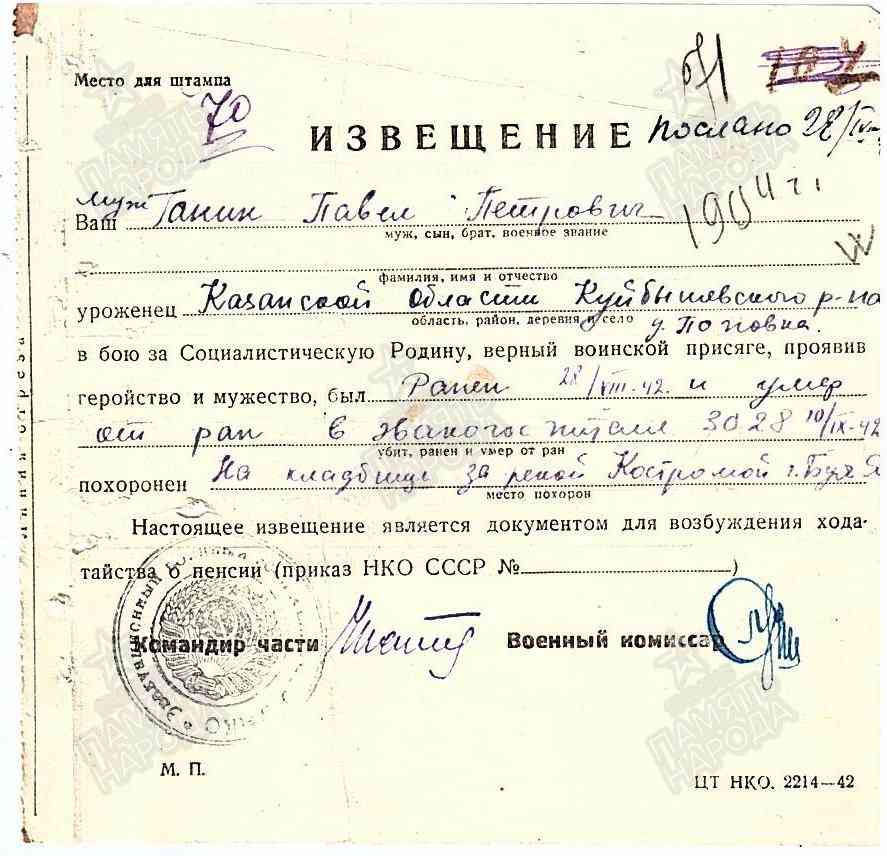 571
Место для штампа
70
ИЗВЕЩЕНИЕ послано 28/IV
муж
Ваш Ганин Павел Петрович
1904 г.
муж, сын, брат, военное звание
фамилия, имя и отчество
уроженец Казанской области Куйбышевского р-на
область, район, деревня и село д. Поповка.
в бою за Социалистическую Родину, верный воинской присяге, проявив
геройство и мужество, был Ранен 28/VIII-42. и умер
от ран в эвакогоспитале 3028 10/IX-42
убит, ранен и умер от ран
похоронен На кладбище за рекой Костромой г. Буй Я
место похорон
Настоящее извещение является документом для возбуждения хода-
тайства о пенсии (приказ НКО СССР № )
Командир части Военный комиссар
М. П.
ЦТ НКО. 2214—42
Линия отреза
ПАМЯТЬ НАРОДА